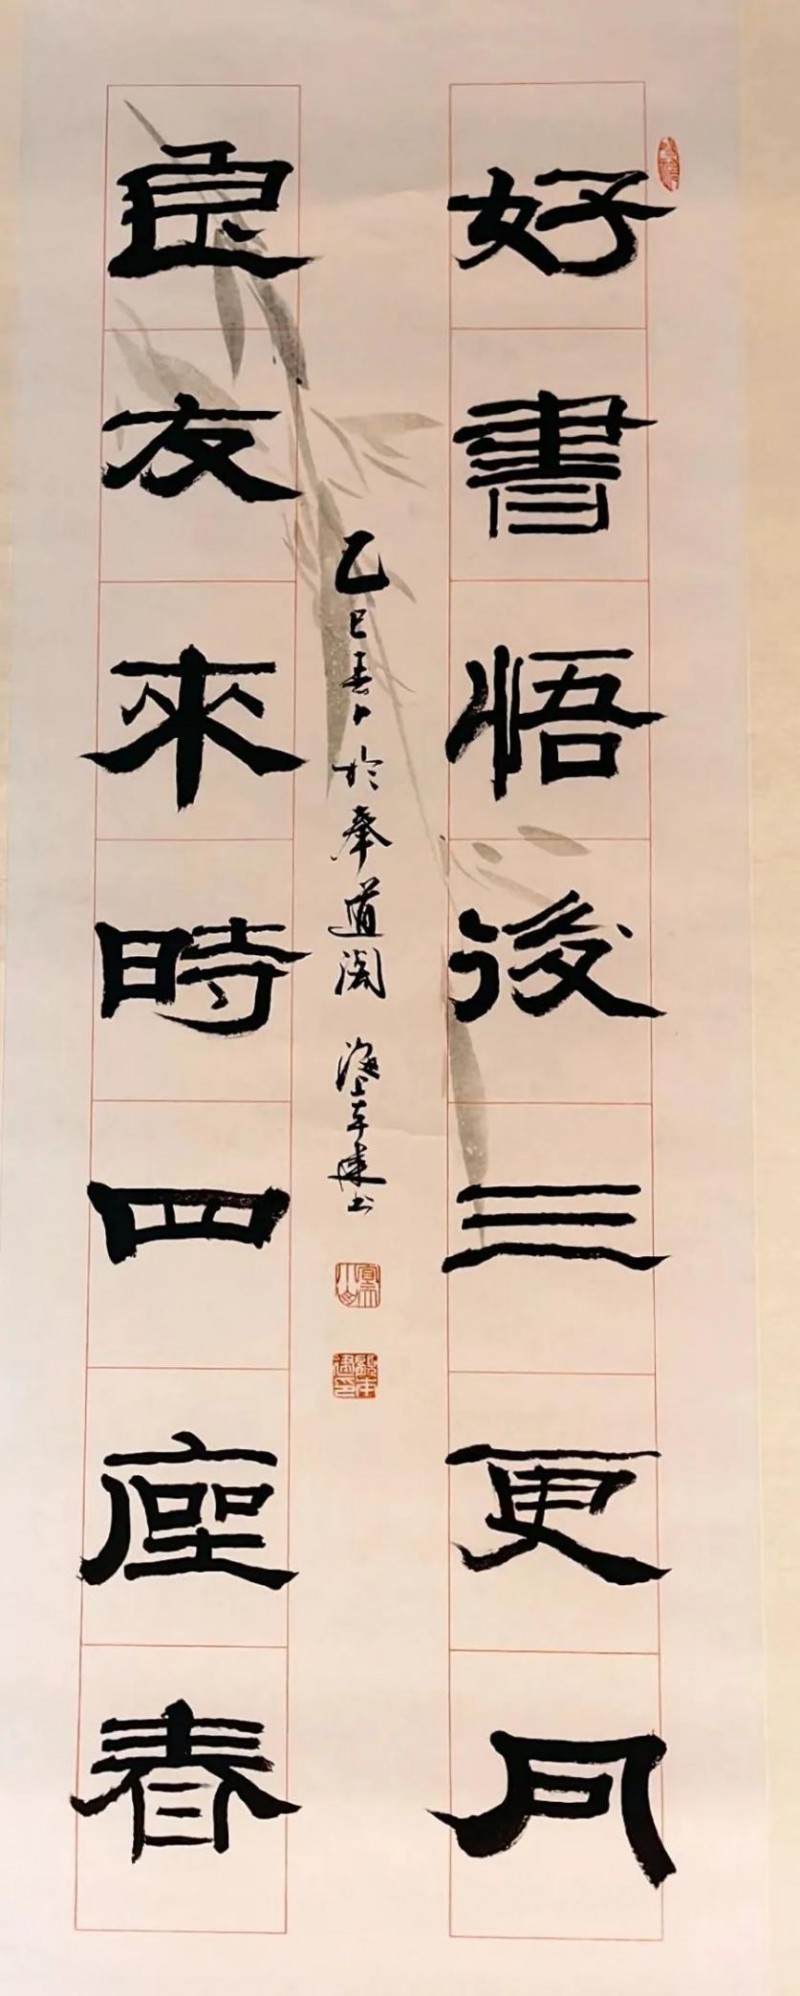 好書悟後三更月
良友來時四座春
乙巳春月於奉道閣 海上辛建書